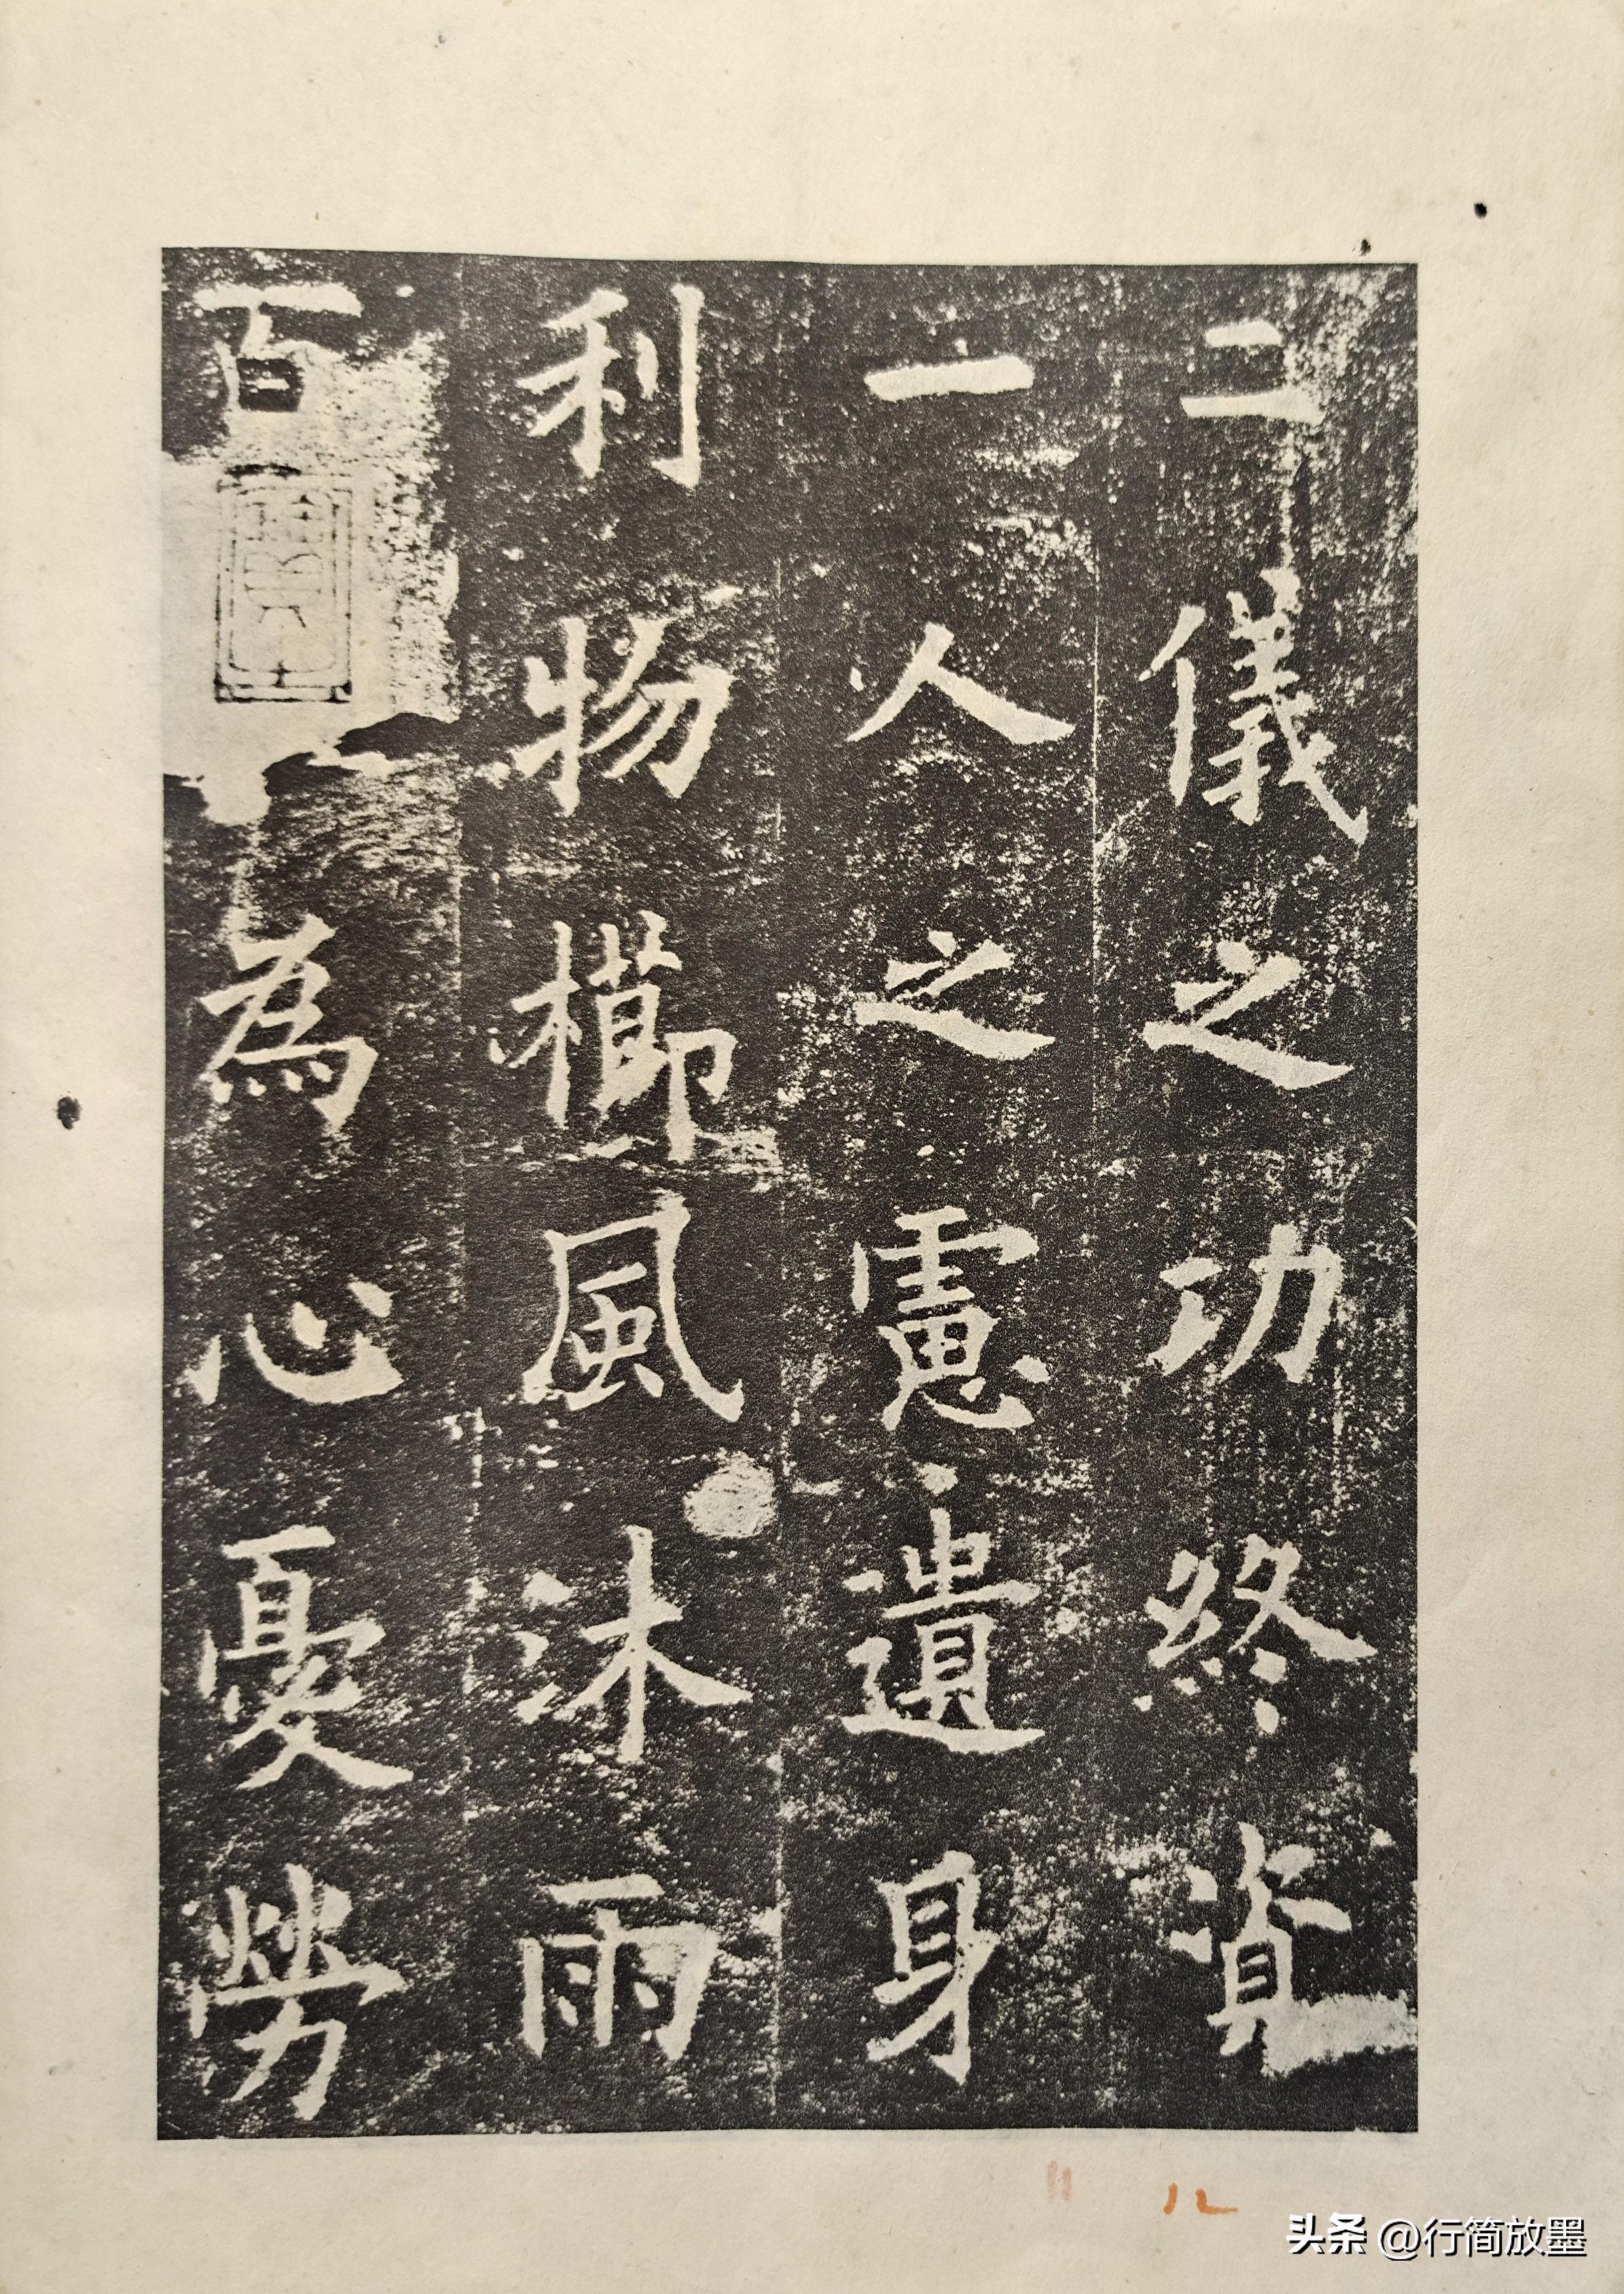 二儀之功終資
一人之慮遺身
利物櫛風沐雨
百為心憂勞
頭条 @行简放墨